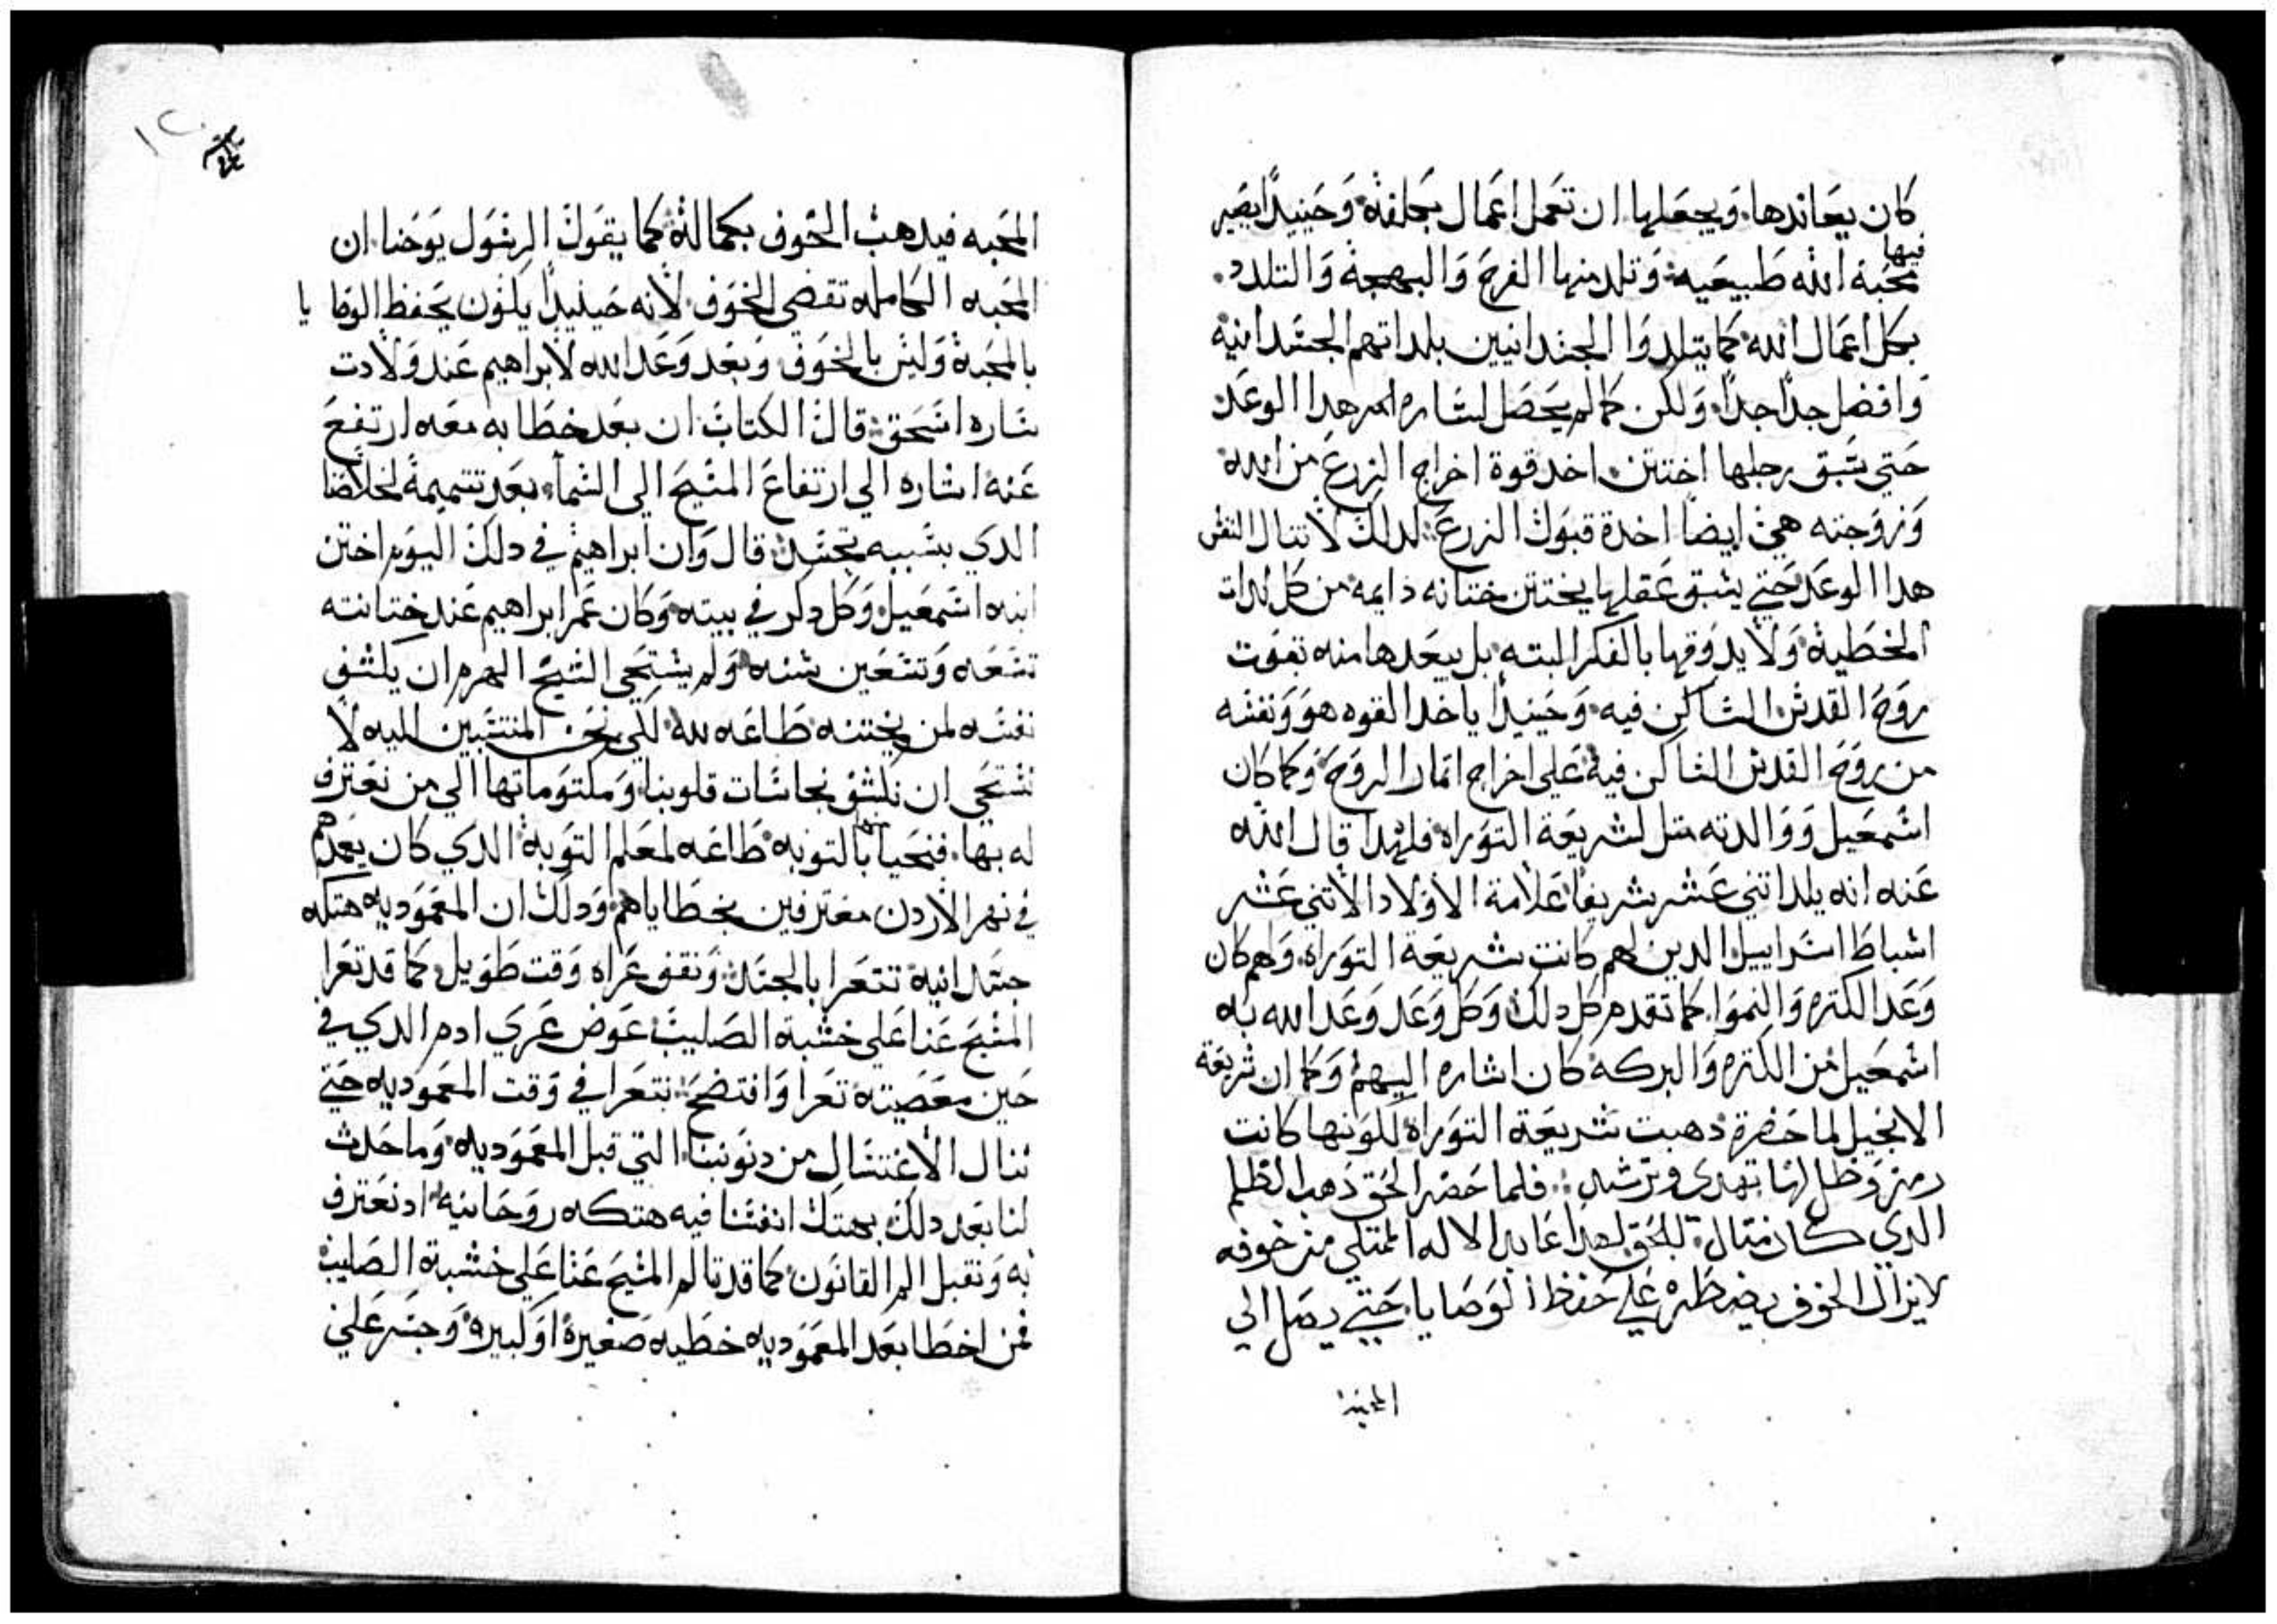 كان يعاندها. ويجعلها ان تعمل اعمال بجلفة وحينيدًا يصير
فيها
محبة الله طبيعيه وتلد منها الفرح والبهجة والتلدد.
بكل اعمال الله كما يتلددوا الجسدانيين بلداتهم الجسدانية
وافضل جداً جداً. ولكن كما لم يحصل لساره امر هدا الوعد
حتي سبق رجلها اختتن. اخد قوة اخراج الزرع من الله
وزوجته هي ايضا اخدة قبول الزرع. لدلك لا تنال النفس
هدا الوعد حتي يسبق عقلها يختتن ختانه دايمه من كل لدات
الخطية ولا يدوقها بالفكر البته بل يبعدها منه بقوت
روح القدس الساكن فيه. وحينيدًا ياخد القوه هو ونفسه
من روح القدس الساكن فيه علي اخراج اتمار الروح وكما كان
اسمعيل ووالدته متل لشريعة التوراه فلهدا قال الله
عنه انه يلد اتني عشر شريفا علامة الاولاد الاتني عشر
اسباط اسراييل الدين لهم كانت شريعة التوراه. ولهم كان
وعد الكتره والنموا. كما تقدم كل دلك وكل وعد وعد الله به
اسمعيل من الكتره والبركه كان اشاره اليهم وكما ان شريعة
الانجيل لما حضرة دهبت شريعة التوراة لكونها كانت
رمز وظل لها تهدي وترشد: فلما حضر الحق دهب الظلم
الدي كان متال للحق لهدا عابد الاله الممتلي من خوفه
لايزال الخوف يضطره علي حفظ الوصايا. حتي يصل الي
المحبة
١٢٠
المحبه فيدهب الخوف بكمالة كما يقول الرسول يوحنا. ان
المحبه الكامله تقصي الخوف لانه حينيدًا يكون يحفظ الوصايا
بالمحبة وليس بالخوف وبعد وعد الله لابراهيم عند ولادت
ساره اسحق قال الكتاب. ان بعد خطابه معه ارتفع
عنه اشاره الي ارتفاع المسيح الي السماء بعد تتميمة لخلاصنا
الدي بسببه تجسد. قال وان ابراهيم في دلك اليوم اختن
ابنه اسمعيل وكل دكر في بيته وكان عمر ابراهيم عند ختانته
تسعه وتسعين سنه ولم يستحي الشيخ الهرم ان يكشف
نفسه لمن يختنه طاعه لله لكي نحن المنتسبين اليه لا
نستحي ان نكشف نجاسات قلوبنا ومكتوماتها الي من نعترف
له بها. فنحيا بالتوبه طاعه لمعلم التوبة الدي كان يعمدهم
في نهر الاردن معترفين بخطاياهم ودلك ان المعموديه هتكه
جسدانية تتعرا بالجسد ونقف عراه وقت طويل كما قد تعرا
المسيح عنا علي خشبة الصليب عوض عري ادم الدي في
حين معصيته تعرا وافتضح: نتعرا في وقت المعموديه حتي
ننال الاغتسال من دنوبنا التي قبل المعموديه وما حدث
لنا بعد دلك بهتك انفسنا فيه هتكه روحانيه اد نعترف
به ونقبل الم القانون كما قد تالم المسيح عنا علي خشبة الصليب
فمن اخطا بعد المعموديه خطيه صغيرة او كبيرة وجسر علي